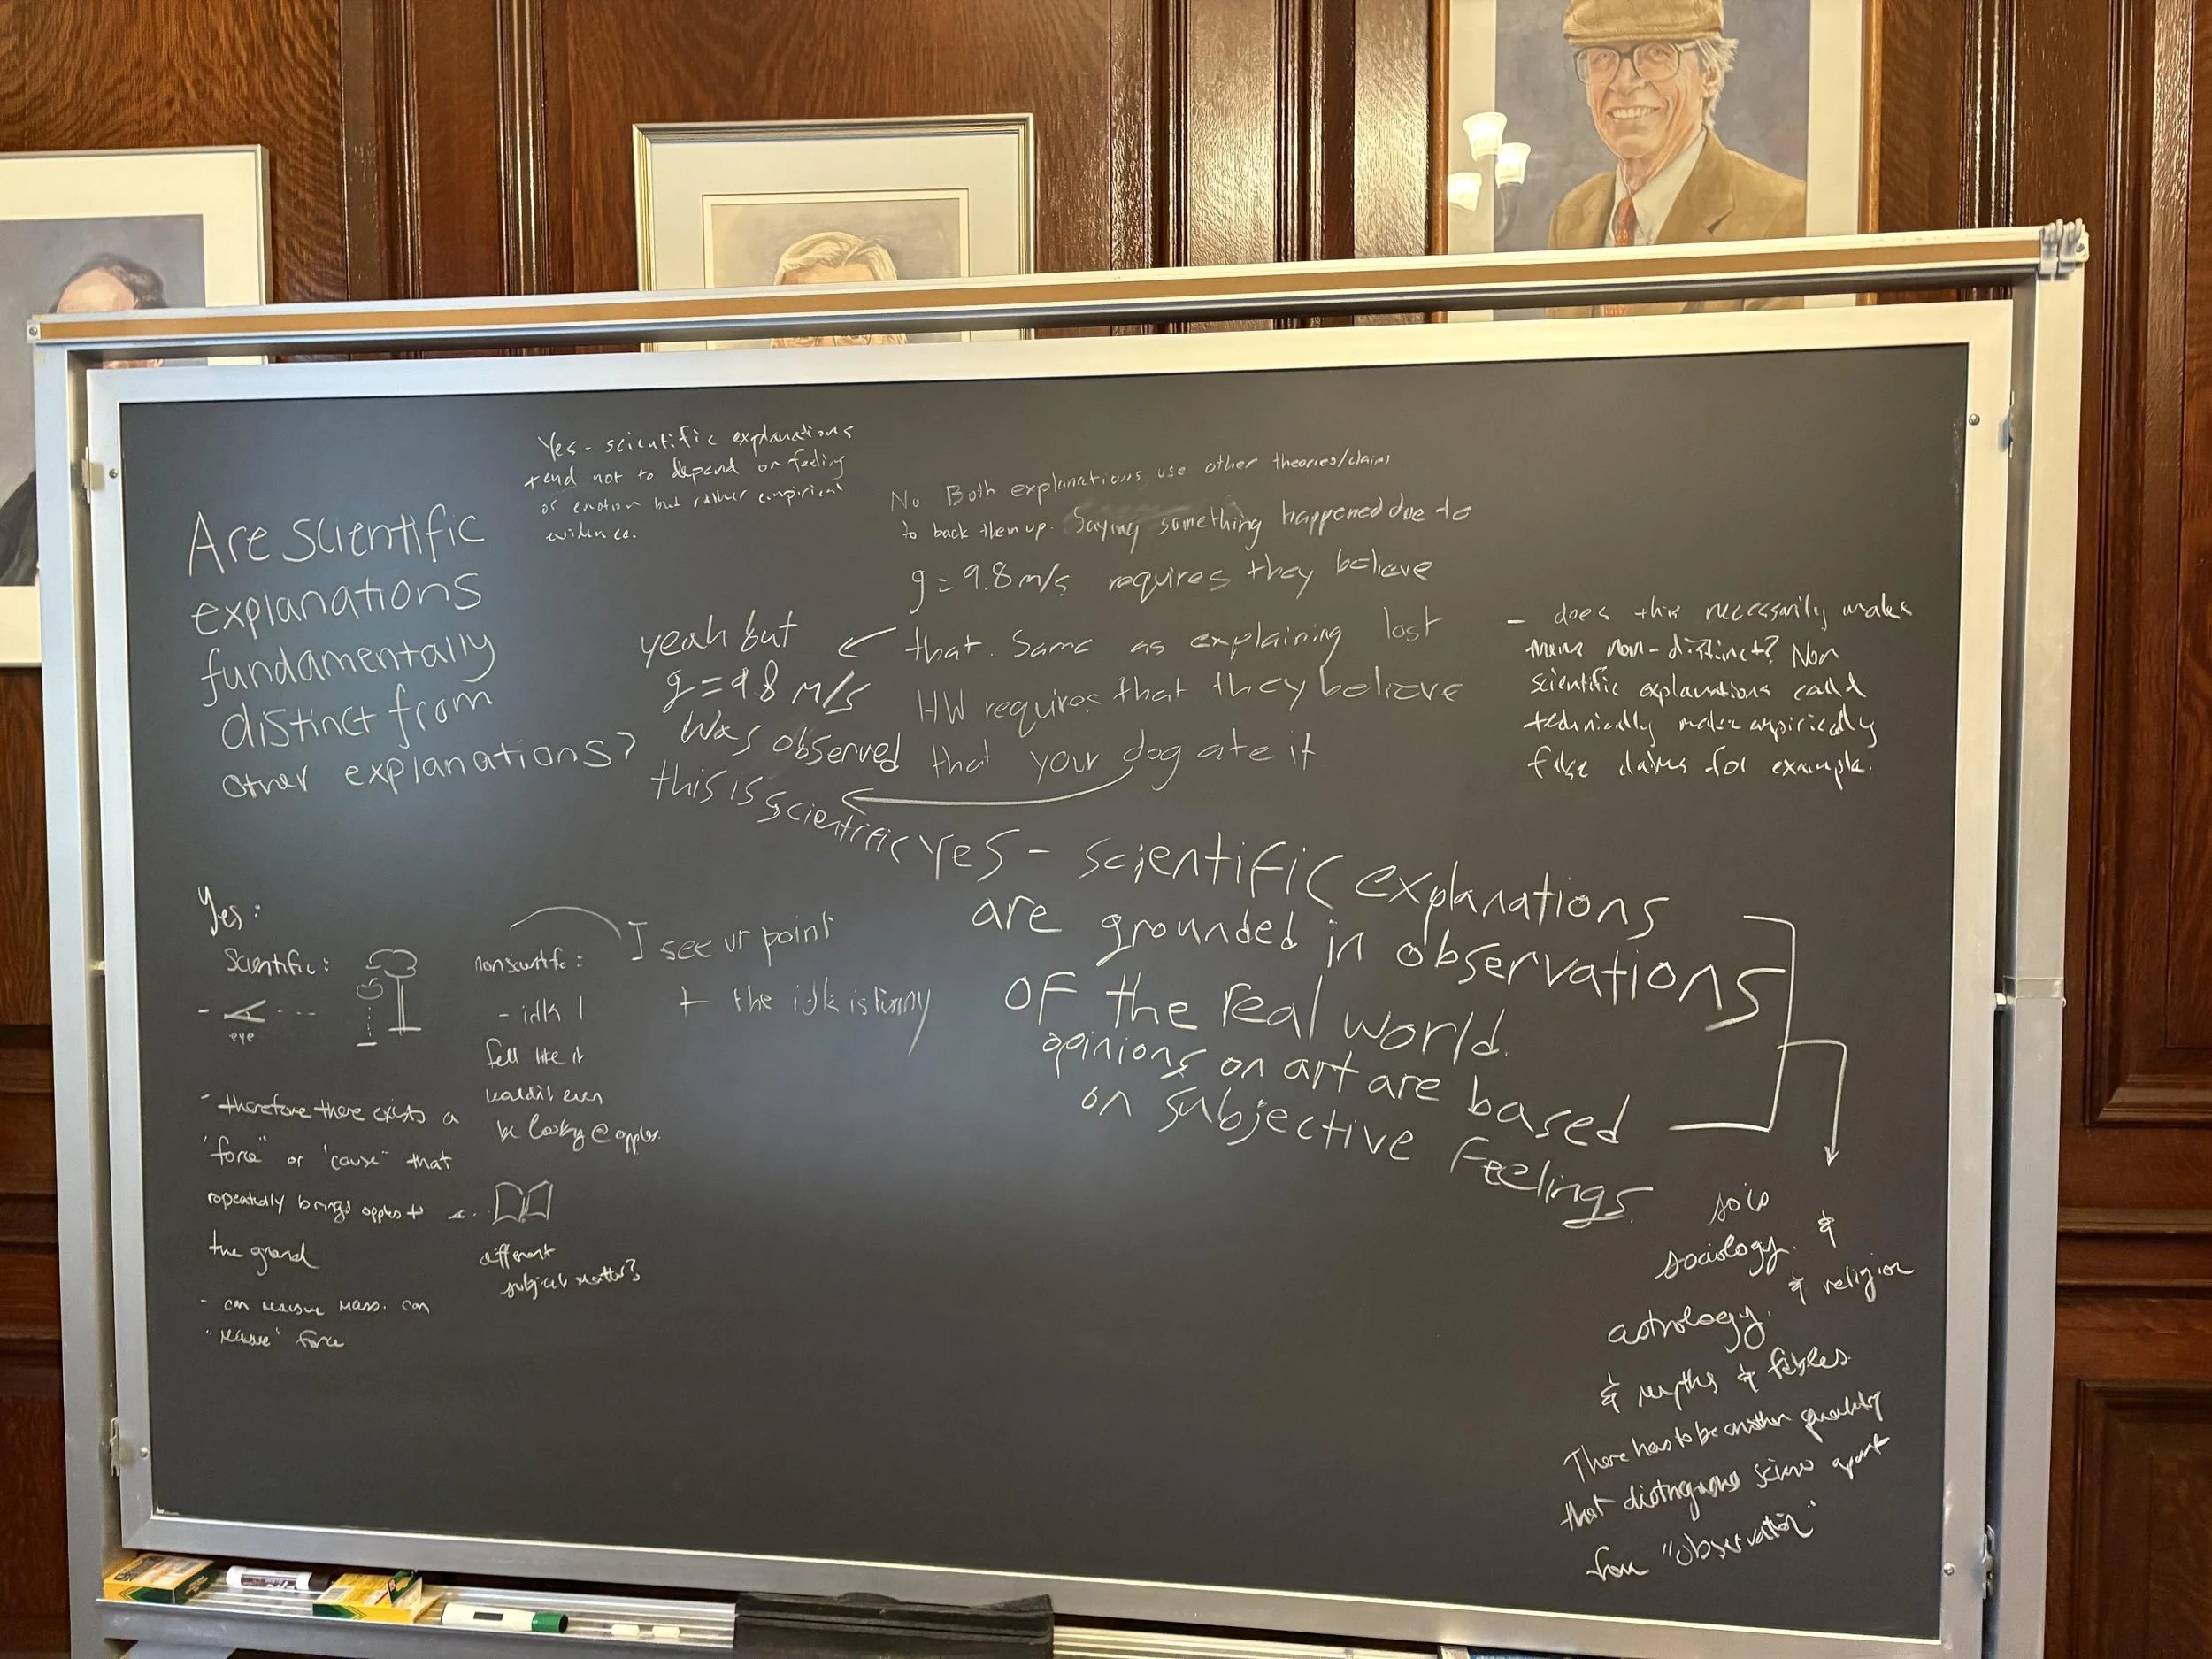 Are scientific
explanations
fundamentally
distinct from
other explanations?
Yes - scientific explanations
tend not to depend on feeling
or emotion but rather empirical
evidence.
No Both explanations use other theories/claims
to back them up. Saying something happened due to
g = 9.8 m/s requires they believe
that. Same as explaining lost
HW requires that they believe
that your dog ate it
yeah but
g = 9.8 m/s
was observed
this is scientific
- does this necessarily make
them non-distinct? Non
scientific explanations could
technically make empirically
false claims for example.
Yes - scientific explanations
are grounded in observations
of the real world.
opinions on art are based
on subjective feelings.
so is
sociology. &
astrology. & religion
& myths & fables.
There has to be another quality
that distinguishes science apart
from "observation"
Yes:
Scientific:
eye
- therefore there exists a
"force" or "cause" that
repeatedly brings apples to
the ground
- can measure mass. can
"measure" force
nonscientific:
- idk I
feel like it
wouldn't even
be looking @ apples.
different
subject matter?
I see ur point
+ the idk is funny